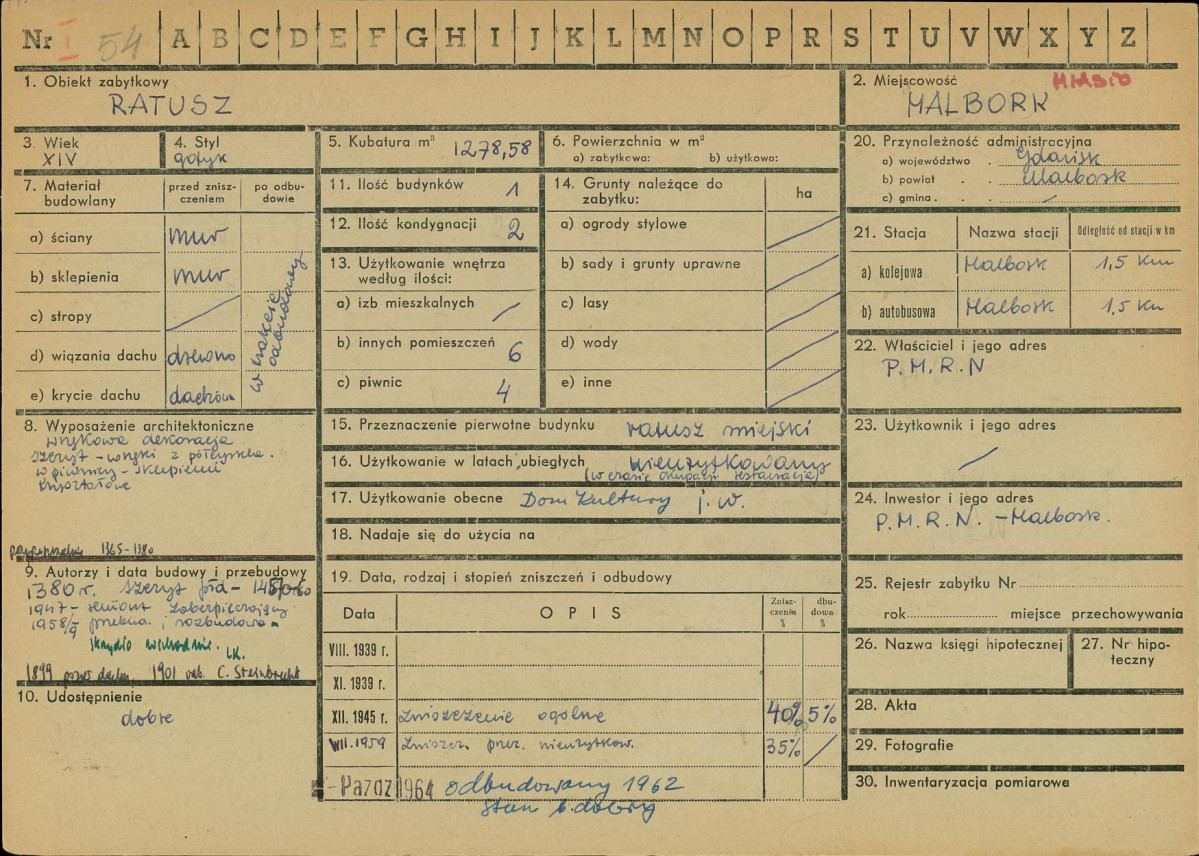 Nr I 54 A B C D E F G H I J K L M N O P R S T U V W X Y Z
1. Obiekt zabytkowy
RATUSZ
2. Miejscowość
MIASTO
MALBORK
3. Wiek
XIV
4. Styl
gotyk
5. Kubatura m³ 1278,58
6. Powierzchnia w m²
a) zabytkowa: b) użytkowa:
20. Przynależność administracyjna
a) województwo . Gdańsk
b) powiat . . Malbork
c) gmina . . /
7. Materiał budowlany
przed znisz-
czeniem
po odbu-
dowie
a) ściany mur
b) sklepienia mur
c) stropy /
d) wiązania dachu drewno
e) krycie dachu dachówka
w trakcie
odbudowy
11. Ilość budynków 1
12. Ilość kondygnacji 2
13. Użytkowanie wnętrza
według ilości:
a) izb mieszkalnych /
b) innych pomieszczeń 6
c) piwnic 4
14. Grunty należące do
zabytku:
ha
a) ogrody stylowe /
b) sady i grunty uprawne /
c) lasy /
d) wody /
e) inne /
21. Stacja Nazwa stacji Odległość od stacji w km
a) kolejowa Malbork 1,5 Km
b) autobusowa Malbork 1,5 Km
22. Właściciel i jego adres
P.M.R.N
8. Wyposażenie architektoniczne
wnękowa dekoracja
szczyt – wnęki z
w piwnicy – sklepienia
kryształowe
15. Przeznaczenie pierwotne budynku ratusz miejski
16. Użytkowanie w latach ubiegłych nieużytkowany
(w czasie okupacji restauracja)
17. Użytkowanie obecne Dom Kultury j.w.
18. Nadaje się do użycia na
23. Użytkownik i jego adres
/
24. Inwestor i jego adres
P.M.R.N. – Malbork.
1365–1380
9. Autorzy i data budowy i przebudowy
1380 r. szczyt płd –
1947 – remont zabezpieczający
1958/9 przebud. i rozbudowa
skrzydło wschodnie. LK.
1899 1901 C. Steinbrecht
10. Udostępnienie
dobre
19. Data, rodzaj i stopień zniszczeń i odbudowy
Data OPIS
Znisz-
czenia
%
dbu-
dowa
%
VIII. 1939 r.
XI. 1939 r.
XII. 1945 r. zniszczenie ogólne 40% 5%
VII. 1959 zniszcz. prez. nieużytkow. 35% /
Paźdz 1964 odbudowany 1962
stan b. dobry
25. Rejestr zabytku Nr
rok miejsce przechowywania
26. Nazwa księgi hipotecznej
27. Nr hipo-
teczny
28. Akta
29. Fotografie
30. Inwentaryzacja pomiarowa